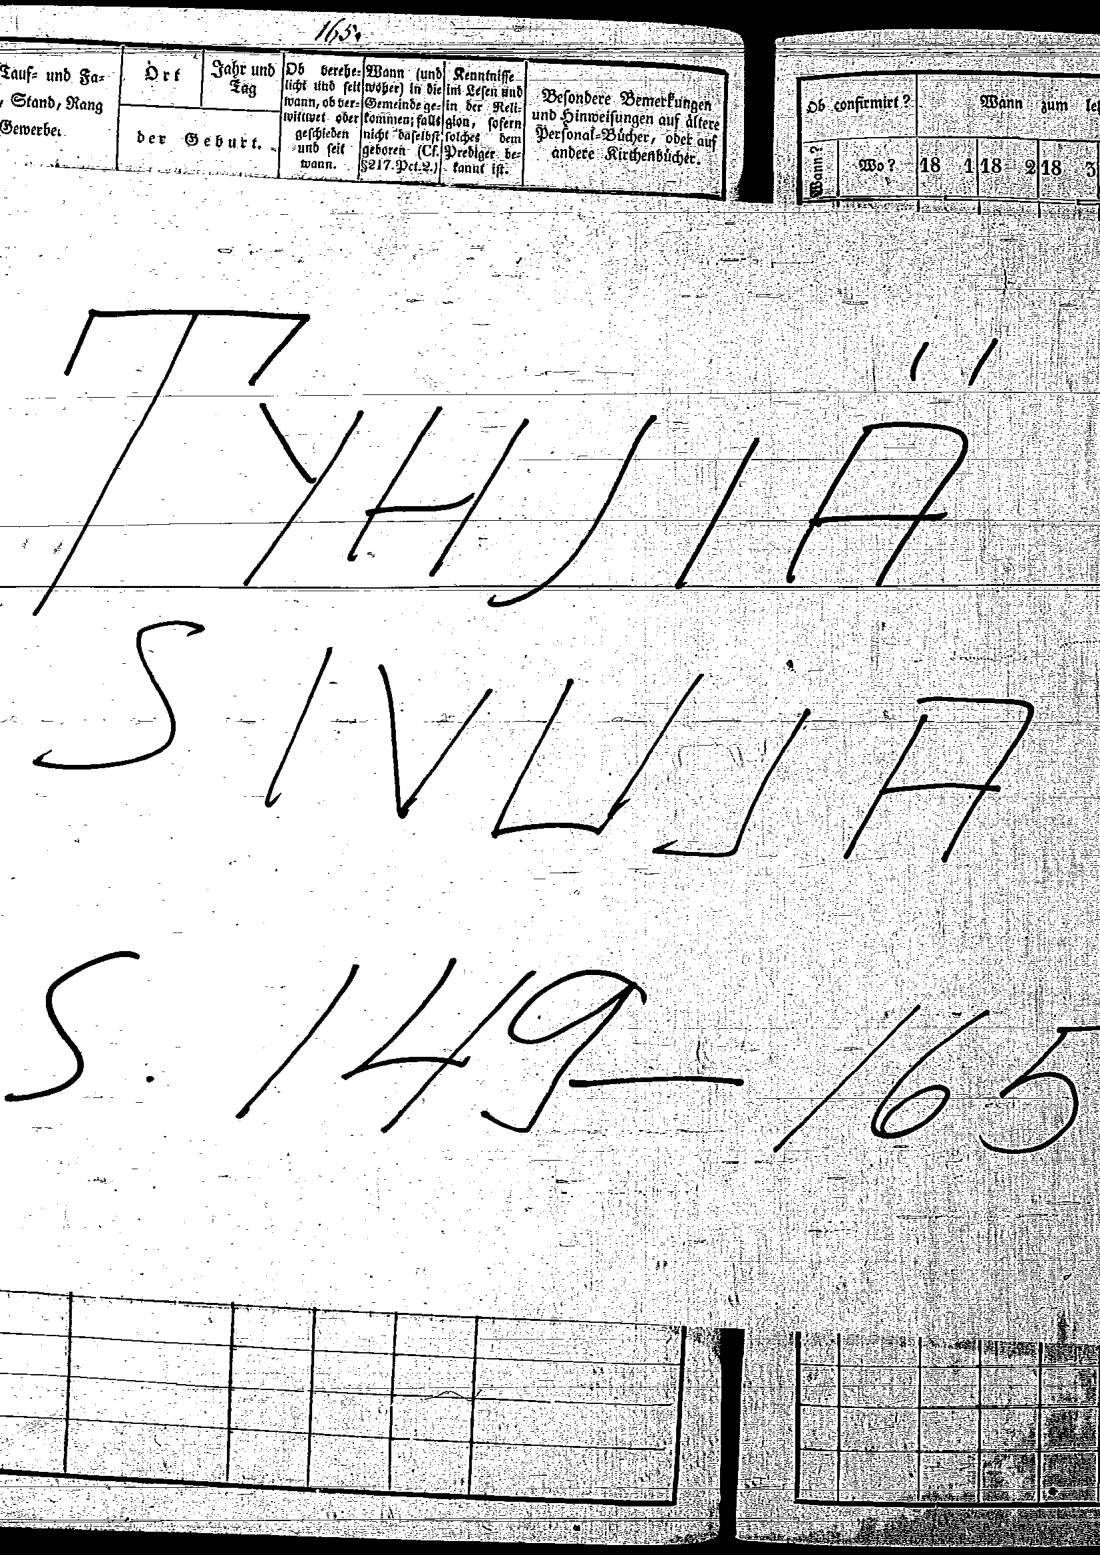 165.
Tauf- und Fa-
, Stand, Rang
Gewerbe.
Ort
Jahr und
Tag
der Geburt.
Ob verehe-
licht und seit
wann, ob ver-
wittwet oder
geschieden
und seit
wann.
Wann (und
woher) in die
Gemeinde ge-
kommen; falls
nicht daselbst
geboren (Cf.
§217. Pct. 2.)
Kenntnisse
im Lesen und
in der Reli-
gion, sofern
solches dem
Prediger be-
kannt ist.
Besondere Bemerkungen
und Hinweisungen auf ältere
Personal-Bücher, oder auf
andere Kirchenbücher.
Ob confirmirt?
Wann?
Wo?
Wann zum
18 1 18 2 18 3
TYHJIÄ
SIVUJA
S. 149 — 165